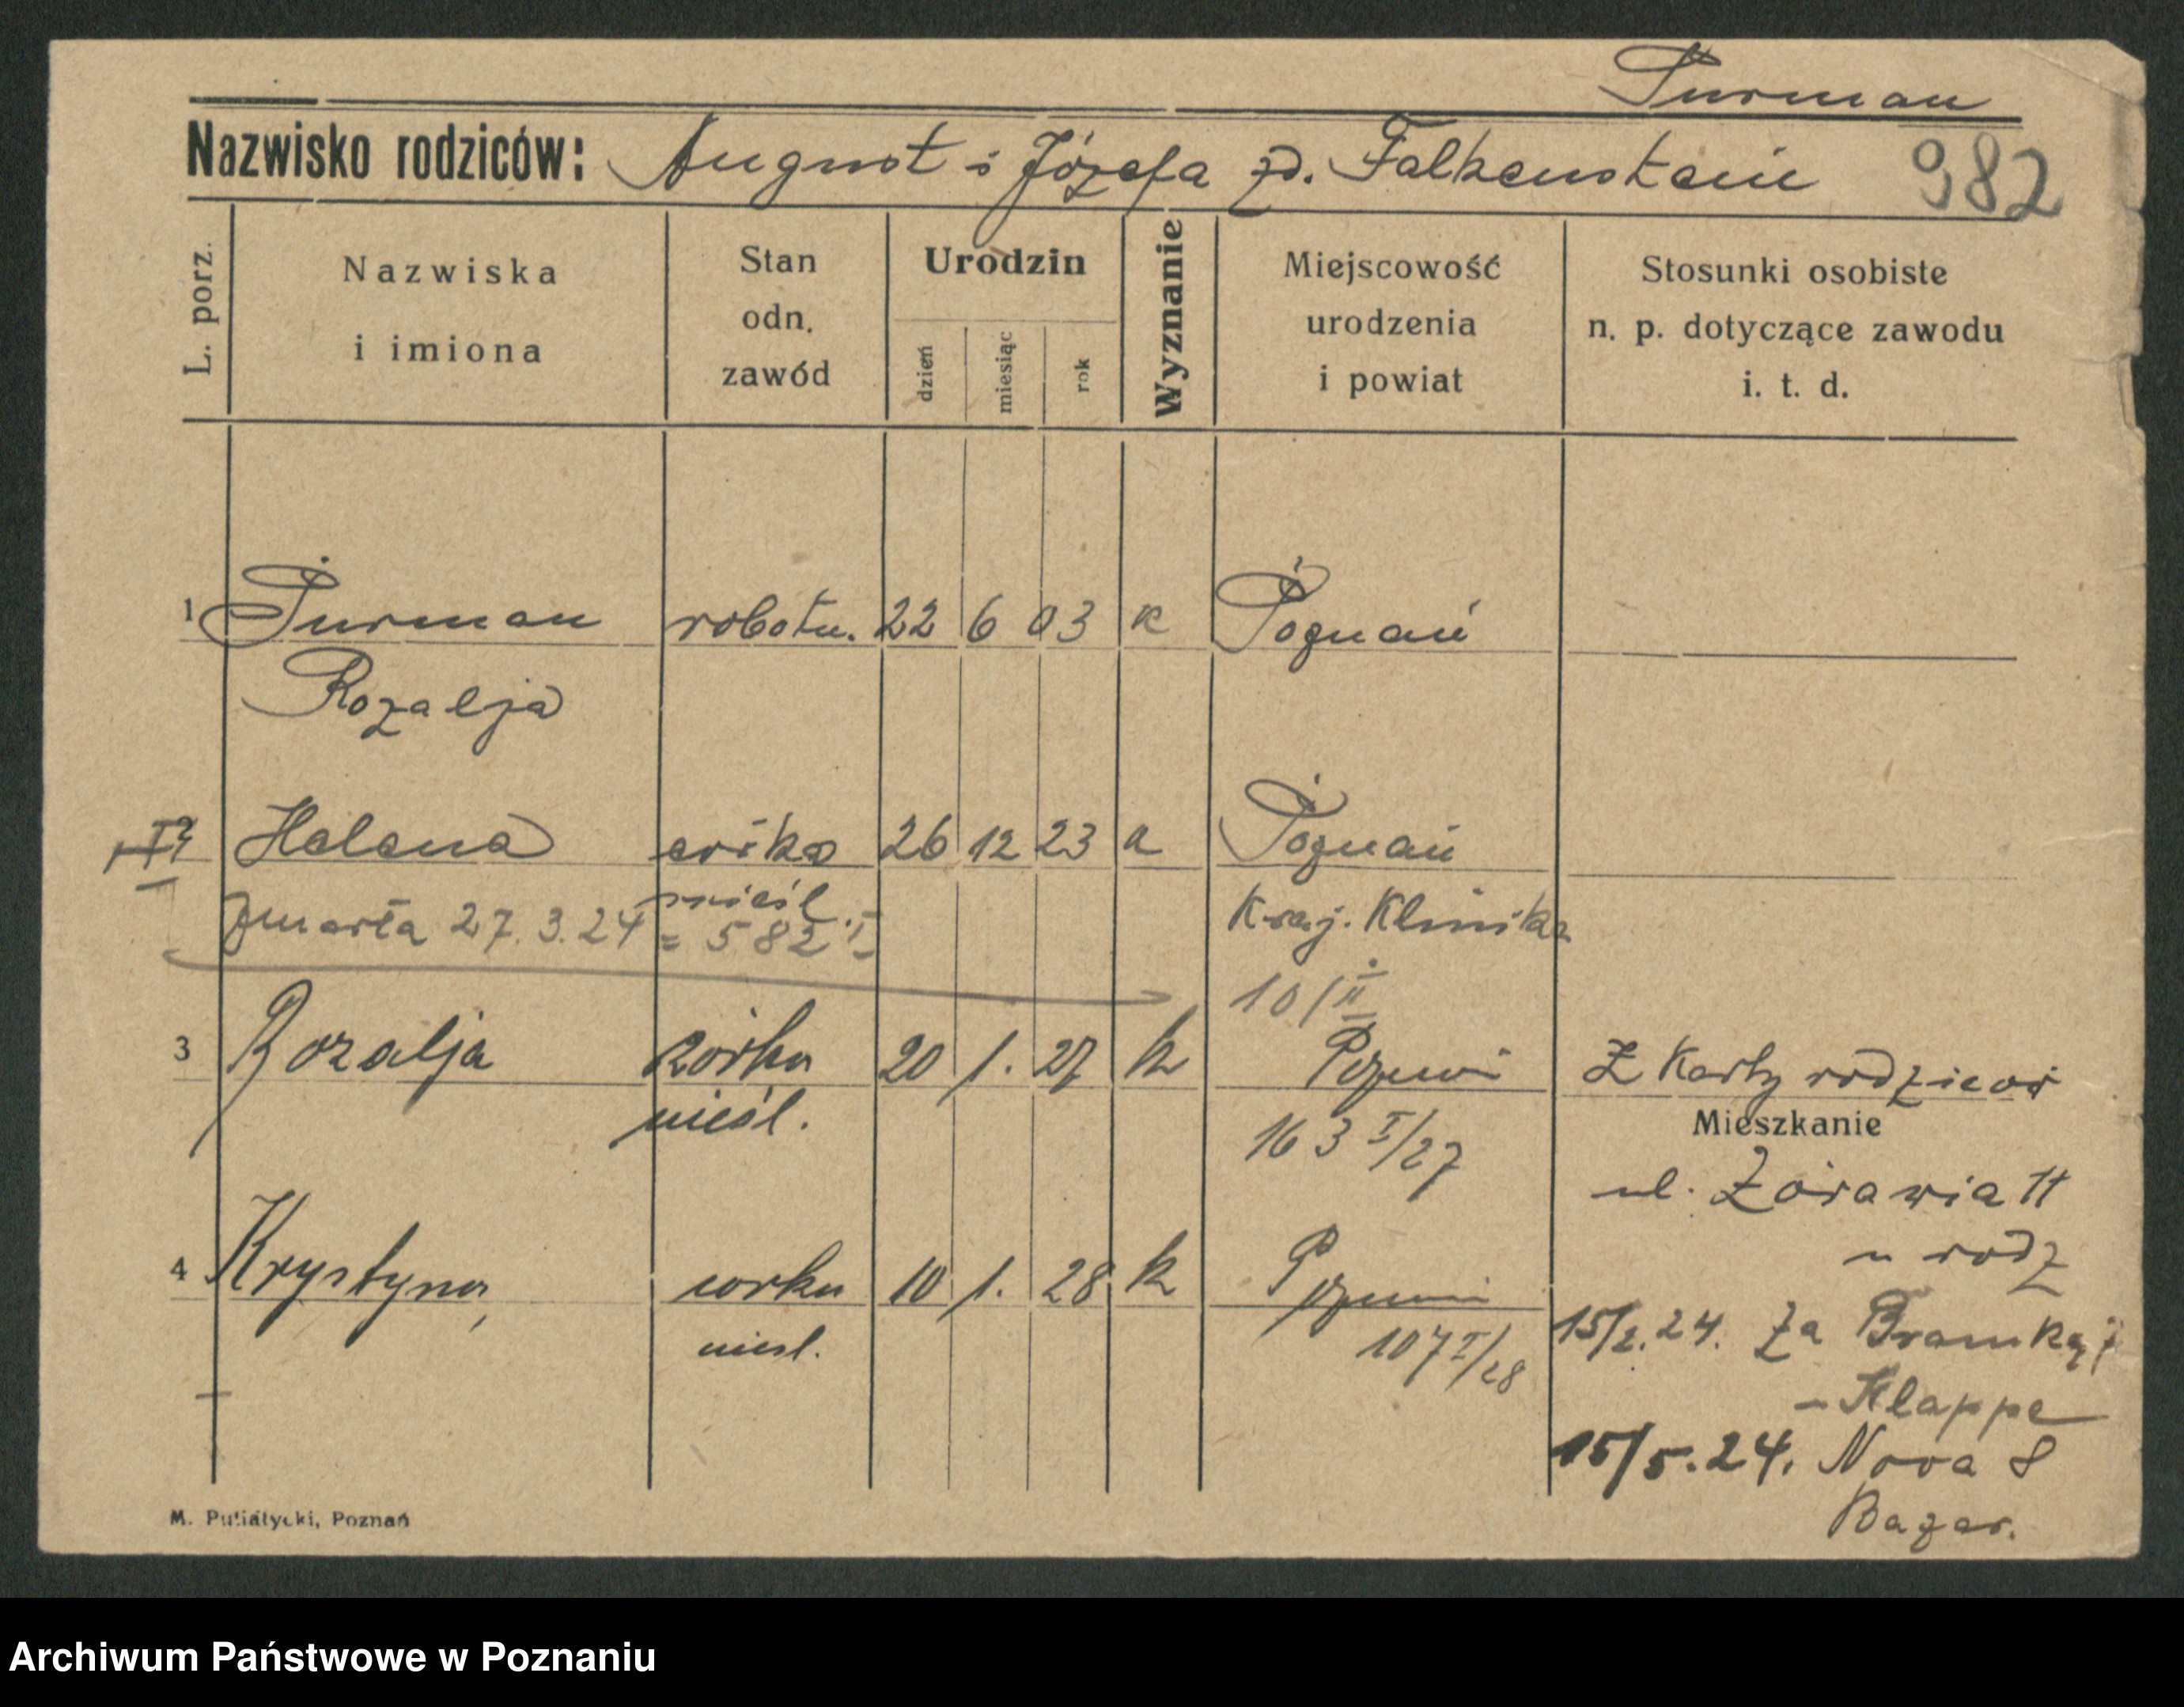 Furman
Nazwisko rodziców: August i Józefa zd. Falkenstein 982
L. porz.
Nazwiska
i imiona
Stan
odn.
zawód
Urodzin
dzień
miesiąc
rok
Wyznanie
Miejscowość
urodzenia
i powiat
Stosunki osobiste
n. p. dotyczące zawodu
i. t. d.
1 Furman robotn. 22 6 03 k Poznań
Rozalja
Helena córka 26 12 23 k Poznań
nieśl.
zmarła 27.3.24 = 582 I Kraj. Klinika
10/II
3 Rozalja córka 20 1. 27 k Poznań Z Karty rodziców
nieśl. 163 I/27
Mieszkanie
ul. Żórawia 11
u rodz
4 Krystyna, corka 10 1. 28 k Poznań
niesl. 107 I/28
15/2.24. Za Bramką 7
- Klappe
15/5.24. Nowa 8
Bazar.
M. Putiatycki, Poznań
Archiwum Państwowe w Poznaniu